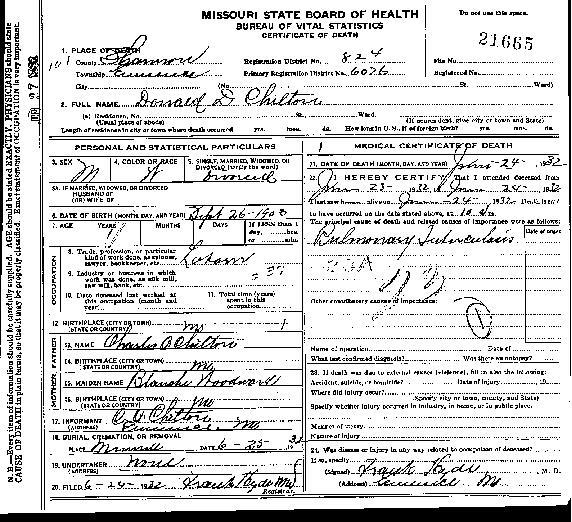 MISSOURI STATE BOARD OF HEALTH
BUREAU OF VITAL STATISTICS
CERTIFICATE OF DEATH
Do not use this space.
21665
1. PLACE OF DEATH
County Shannon Registration District No. 824 File No.
Township Eminence Primary Registration District No. 6076 Registered No.
City (No. St. Ward)
2. FULL NAME Donald D Chilton
(a) Residence, No. St. Ward.
(Usual place of abode) (If nonresident, give city or town and State)
Length of residence in city or town where death occurred yrs. mos. ds. How long in U. S., if of foreign birth? yrs. mos. ds.
PERSONAL AND STATISTICAL PARTICULARS
3. SEX M
4. COLOR OR RACE W
5. SINGLE, MARRIED, WIDOWED, OR DIVORCED (write the word) Divorced
5A. IF MARRIED, WIDOWED, OR DIVORCED
HUSBAND OF
(OR) WIFE OF
6. DATE OF BIRTH (MONTH, DAY, AND YEAR) Sept 26-1903
7. AGE YEARS MONTHS DAYS If LESS than 1 day, hrs. or min.
OCCUPATION
8. Trade, profession, or particular kind of work done, as sawyer, bookkeeper, etc.
9. Industry or business in which work was done, as silk mill, saw mill, bank, etc.
10. Date deceased last worked at this occupation (month and year)
11. Total time (years) spent in this occupation
12. BIRTHPLACE (CITY OR TOWN) (STATE OR COUNTRY) Mo
FATHER
13. NAME Charles O Chilton
14. BIRTHPLACE (CITY OR TOWN) (STATE OR COUNTRY) Mo
MOTHER
15. MAIDEN NAME Blanche
16. BIRTHPLACE (CITY OR TOWN) (STATE OR COUNTRY) Mo
17. INFORMANT C. O. Chilton
(ADDRESS) Eminence Mo
18. BURIAL, CREMATION, OR REMOVAL
PLACE DATE 6-25-32
19. UNDERTAKER None
(ADDRESS)
20. FILED 6-24-1932 Frank Hyde MD
Registrar.
MEDICAL CERTIFICATE OF DEATH
21. DATE OF DEATH (MONTH, DAY, AND YEAR) June-24-1932
22. I HEREBY CERTIFY, That I attended deceased from
June 23-1932 to June-24-1932
I last saw h alive on June-24-1932 Death is said
to have occurred on the date stated above, at 10 a m.
The principal cause of death and related causes of importance were as follows: Date of onset
Pulmonary Tuberculosis
23A
Other contributory causes of importance:
1
Name of operation Date of
What test confirmed diagnosis? Was there an autopsy?
23. If death was due to external causes (violence), fill in also the following:
Accident, suicide, or homicide? Date of injury 19
Where did injury occur?
(Specify city or town, county, and State)
Specify whether injury occurred in industry, in home, or in public place.
Manner of injury
Nature of injury
24. Was disease or injury in any way related to occupation of deceased?
If so, specify
(Signed) Frank Hyde M. D.
(Address) Eminence Mo
N. B.—Every item of information should be carefully supplied. AGE should be stated EXACTLY. PHYSICIANS should state
CAUSE OF DEATH in plain terms, so that it may be properly classified. Exact statement of OCCUPATION is very important.